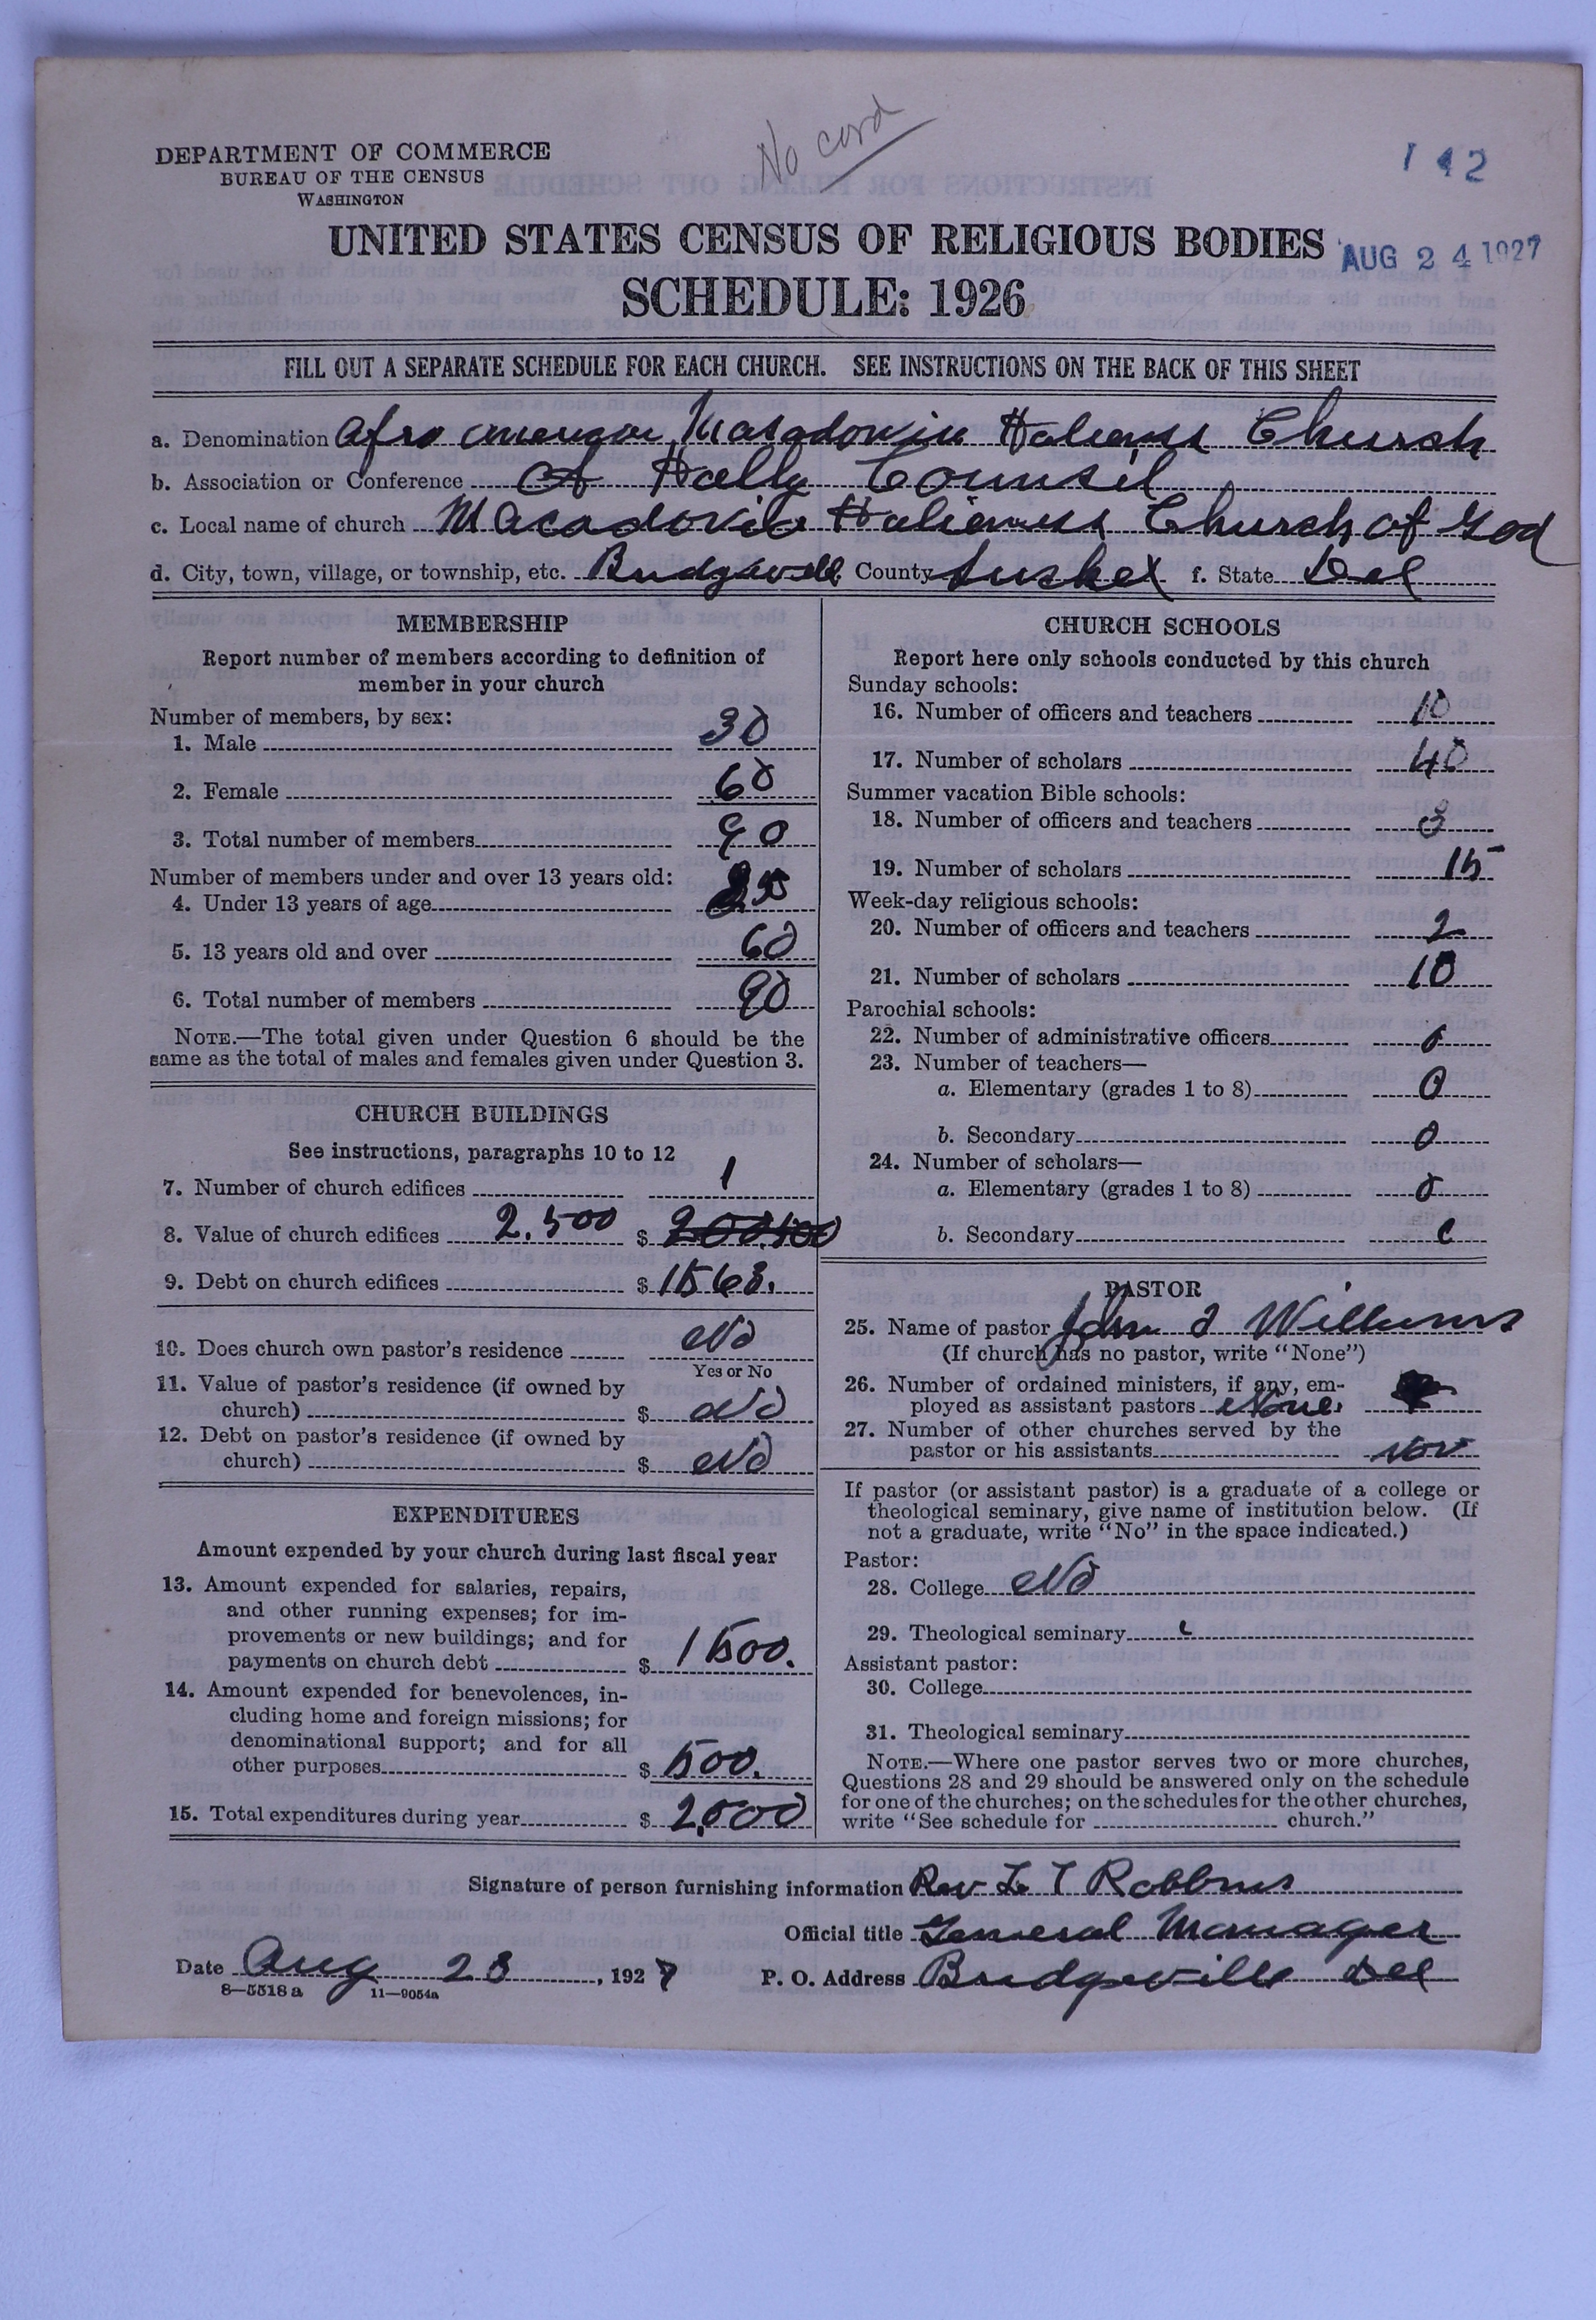 No cord
142
DEPARTMENT OF COMMERCE
BUREAU OF THE CENSUS
WASHINGTON
UNITED STATES CENSUS OF RELIGIOUS BODIES
AUG 24 1927
SCHEDULE: 1926
FILL OUT A SEPARATE SCHEDULE FOR EACH CHURCH. SEE INSTRUCTIONS ON THE BACK OF THIS SHEET
a. Denomination Afro Church
b. Association or Conference Of Holly Counsil
c. Local name of church Church of God
d. City, town, village, or township, etc. County f. State Del
MEMBERSHIP
Report number of members according to definition of
member in your church
Number of members, by sex:
1. Male 30
2. Female 60
3. Total number of members 90
Number of members under and over 13 years old:
4. Under 13 years of age
5. 13 years old and over 60
6. Total number of members 90
NOTE.—The total given under Question 6 should be the
same as the total of males and females given under Question 3.
CHURCH BUILDINGS
See instructions, paragraphs 10 to 12
7. Number of church edifices 1
8. Value of church edifices 2.500 $
9. Debt on church edifices $ 1563.
10. Does church own pastor's residence No
Yes or No
11. Value of pastor's residence (if owned by
church) $ No
12. Debt on pastor's residence (if owned by
church) $ No
EXPENDITURES
Amount expended by your church during last fiscal year
13. Amount expended for salaries, repairs,
and other running expenses; for im-
provements or new buildings; and for
payments on church debt $ 1500.
14. Amount expended for benevolences, in-
cluding home and foreign missions; for
denominational support; and for all
other purposes $ 500.
15. Total expenditures during year $ 2,000
CHURCH SCHOOLS
Report here only schools conducted by this church
Sunday schools:
16. Number of officers and teachers 10
17. Number of scholars 40
Summer vacation Bible schools:
18. Number of officers and teachers 3
19. Number of scholars 15
Week-day religious schools:
20. Number of officers and teachers 2
21. Number of scholars 10
Parochial schools:
22. Number of administrative officers 0
23. Number of teachers—
a. Elementary (grades 1 to 8) 0
b. Secondary 0
24. Number of scholars—
a. Elementary (grades 1 to 8) 0
b. Secondary
PASTOR
25. Name of pastor John Williams
(If church has no pastor, write "None")
26. Number of ordained ministers, if any, em-
ployed as assistant pastors None.
27. Number of other churches served by the
pastor or his assistants
If pastor (or assistant pastor) is a graduate of a college or
theological seminary, give name of institution below. (If
not a graduate, write "No" in the space indicated.)
Pastor:
28. College No
29. Theological seminary
Assistant pastor:
30. College
31. Theological seminary
NOTE.—Where one pastor serves two or more churches,
Questions 28 and 29 should be answered only on the schedule
for one of the churches; on the schedules for the other churches,
write "See schedule for church."
Signature of person furnishing information Rev Robbins
Official title General Manager
Date Aug 23, 1927 P. O. Address Bridgeville Del
8—5518 a 11—9054a